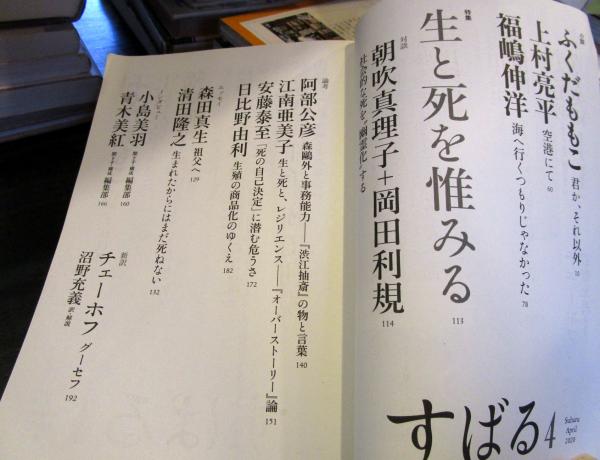 小説
ふくだももこ 君か、それ以外 10
上村亮平 空港にて 60
福嶋伸洋 海へ行くつもりじゃなかった 78
特集
生と死を惟みる 113
対談
朝吹真理子+岡田利規 114
社会的な死を“幽霊化”する
すばる4
Subaru
April
2020
論考
阿部公彦 森鷗外と事務能力――『渋江抽斎』の物と言葉 140
江南亜美子 生と死と、レジリエンス――『オーバーストーリー』論 151
安藤泰至 「死の自己決定」に潜む危うさ 172
日比野由利 生殖の商品化のゆくえ 182
エッセイ
森田真生 祖父へ 129
清田隆之 生まれたからにはまだ死ねない 132
インタビュー
小島美羽 聞き手・構成 編集部 160
青木美紅 聞き手・構成 編集部 166
新訳
チェーホフ グーセフ 192
沼野充義 訳・解説